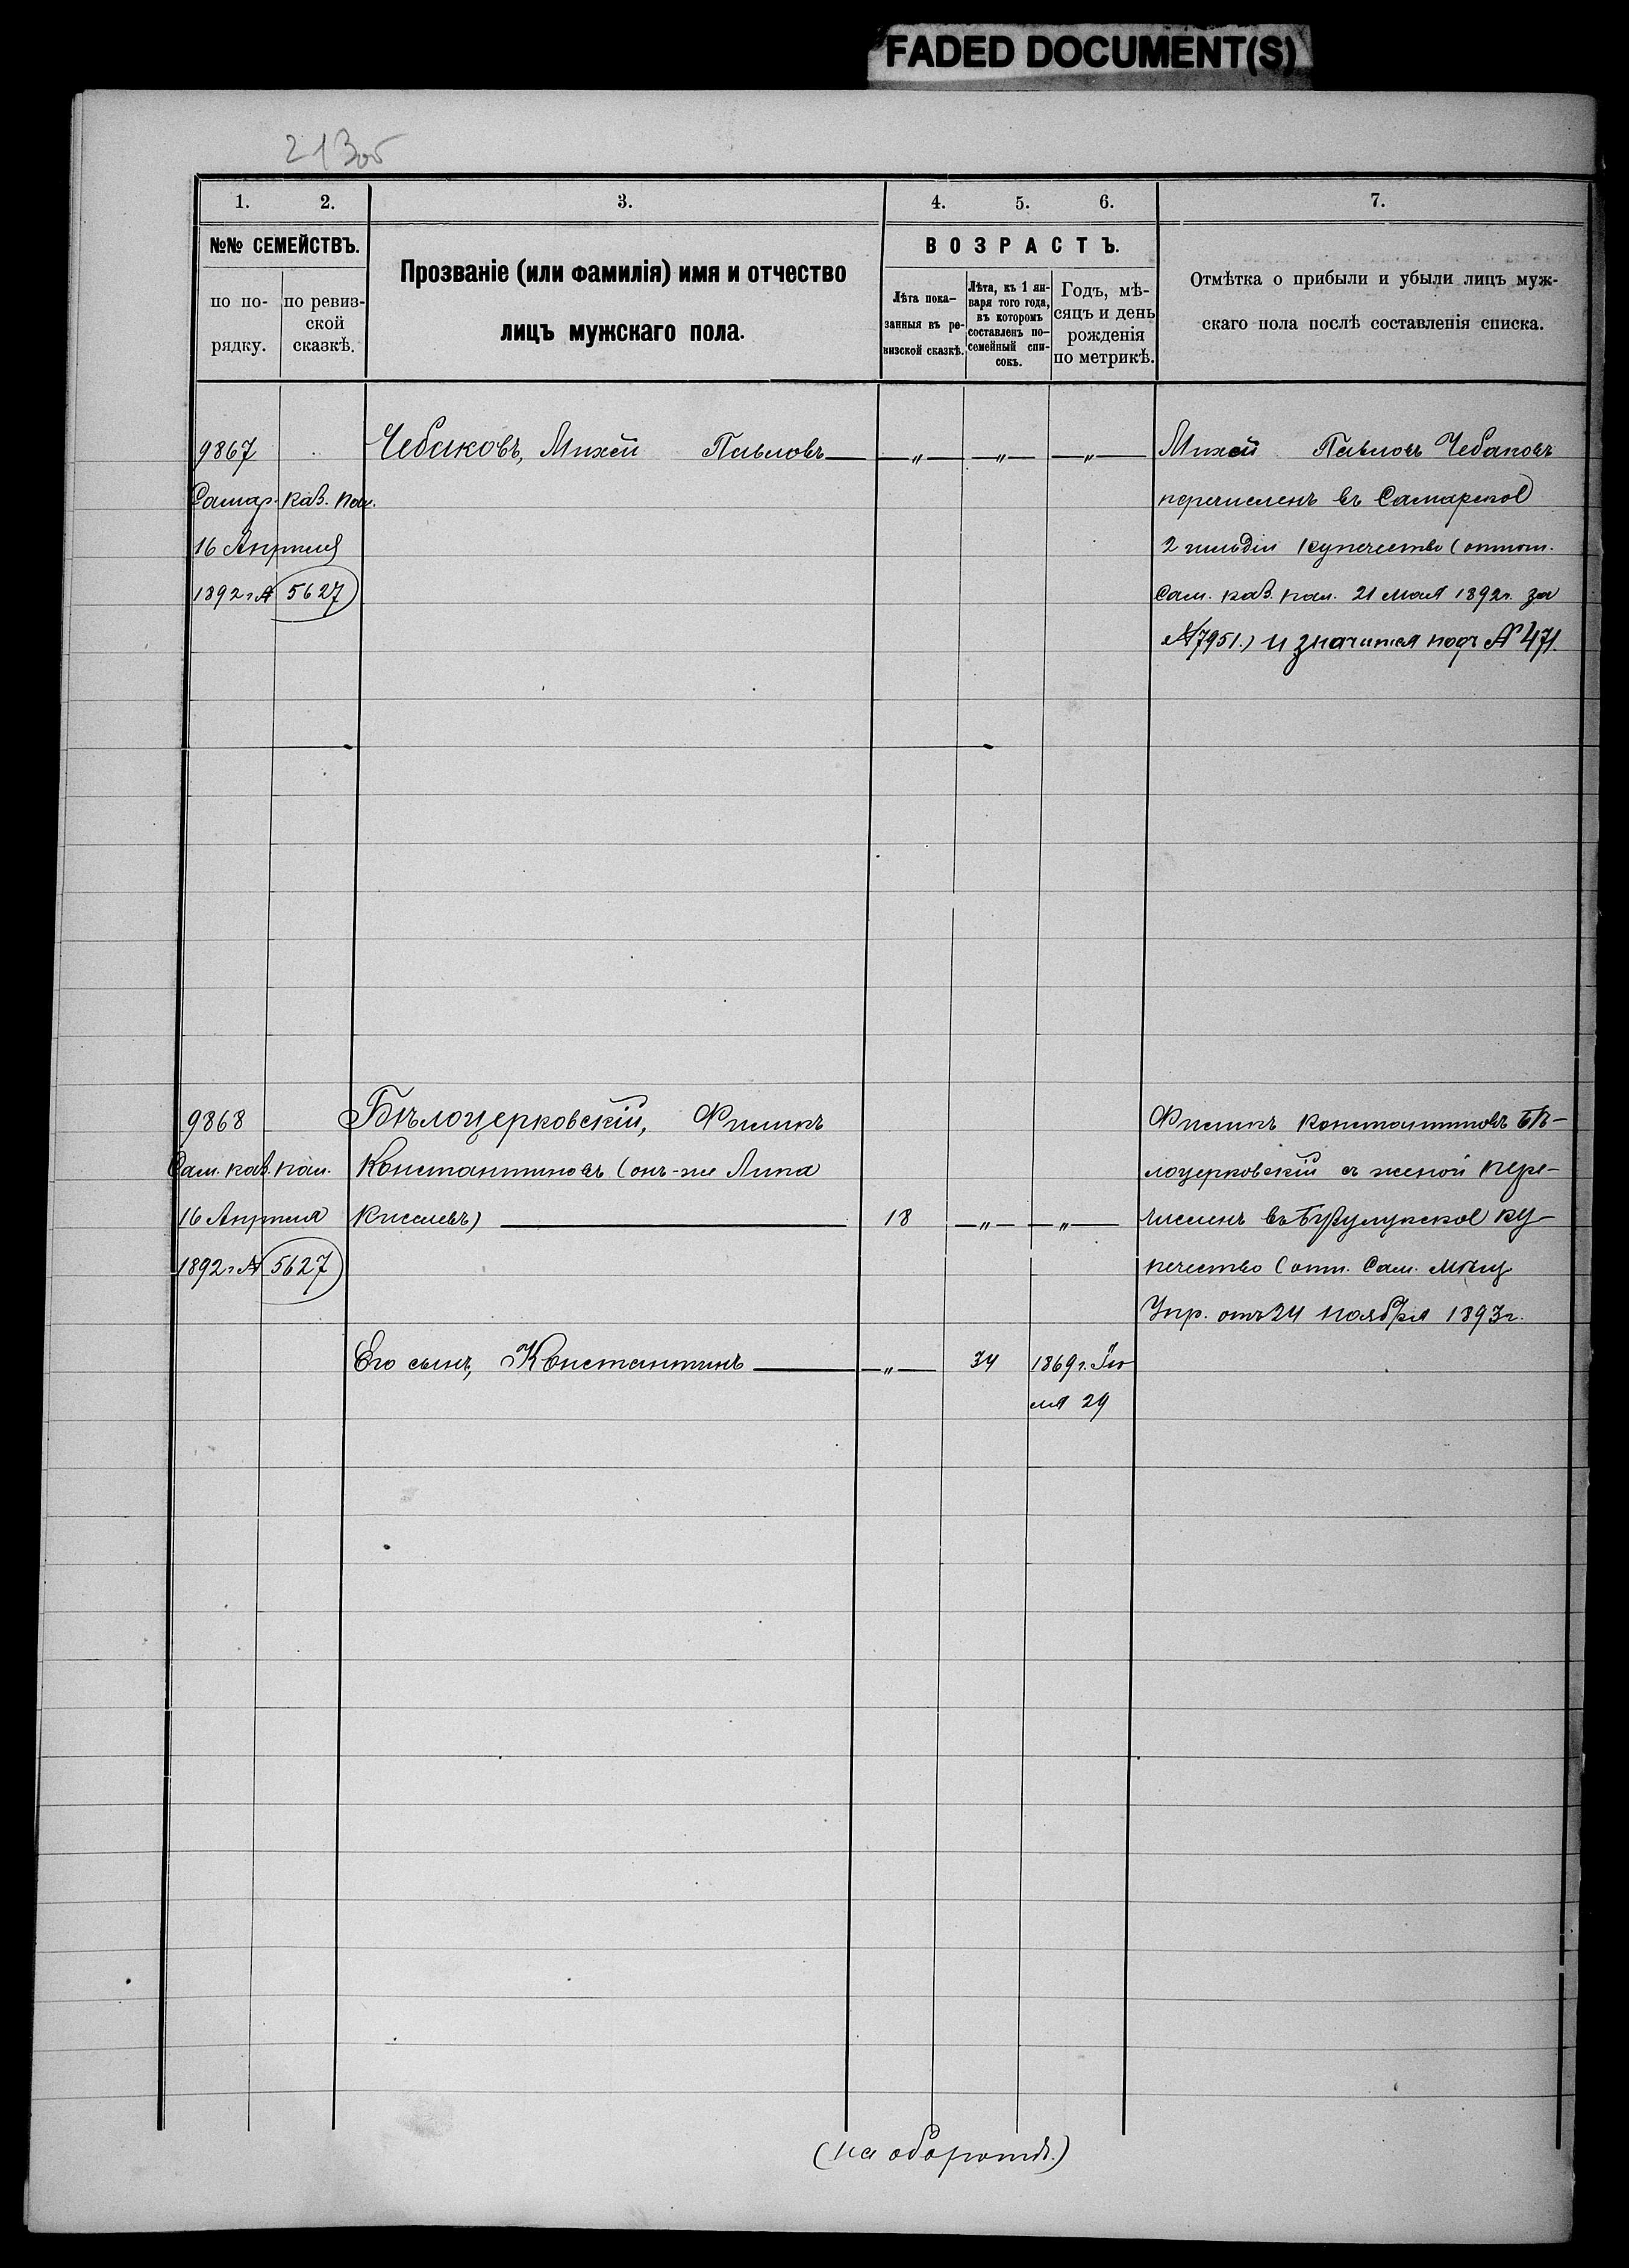 FADED DOCUMENT(S)
213об
1. 2. 3. 4. 5. 6. 7.
№№ СЕМЕЙСТВЪ.
по по-
рядку.
по ревиз-
ской
сказкѣ.
Прозваніе (или фамилія) имя и отчество
лицъ мужскаго пола.
ВОЗРАСТЪ.
Лѣта пока-
занныя въ ре-
визской сказкѣ.
Лѣта, къ 1 ян-
варя того года,
въ которомъ
составленъ по-
семейный спи-
сокъ.
Годъ, мѣ-
сяцъ и день
рожденія
по метрикѣ.
Отмѣтка о прибыли и убыли лицъ муж-
скаго пола послѣ составленія списка.
9867
Самар. каз. пал.
16 Апрѣля
1892 г. № 5627
Чебаковъ, Михей Павловъ — „ — „ — „ —
Михей Павловъ Чебаковъ
перечисленъ въ Самарское
2 гильдіи купечество (отнош.
Сам. каз. пал. 21 мая 1892 г. за
№ 7951.) и значится подъ № 471.
9868
Сам. каз. пал.
16 Апрѣля
1892 г. № 5627
Бѣлоцерковскій, Филипъ
Константиновъ (онъ-же
Киселевъ) — 18 — „ — „ —
Филипъ Константиновъ Бѣ-
лоцерковскій съ женой пере-
численъ въ Бузулукское ку-
печество (отн. Сам. Мѣщ.
Упр. отъ 24 ноября 1893 г.
Его сынъ, Константинъ — „ — 34 1869 г. Ію
ля 29
(на оборотѣ.)